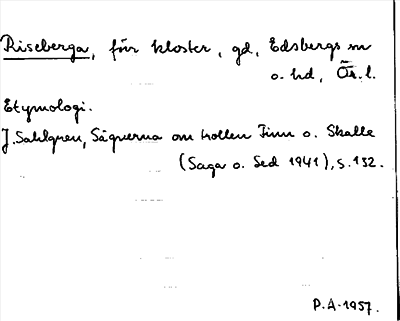 Riseberga, för kloster, gd, Edsbergs sn
o. hd, Ör. l.
Etymologi.
J. Sahlgren, Sägnerna om trollen Finn o. Skalle
(Saga o. Sed 1941), s. 132.
P.A-1957.